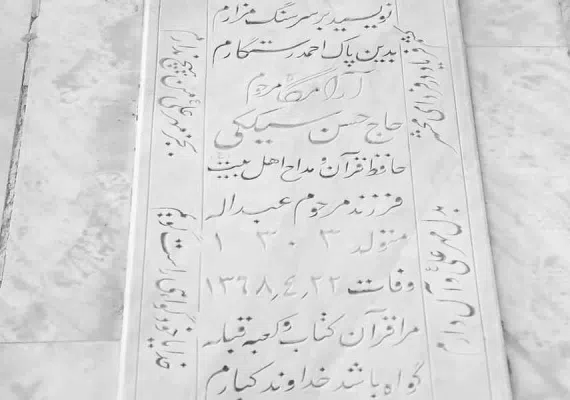 نویسید بر سر سنگ مزارم
بدین پاک احمد رستگارم
آرامگاه مرحوم
حاج حسن سیبکی
حافظ قرآن و مداح اهل بیت
فرزند مرحوم عبداله
متولد ۱۳۰۳
وفات ۱۳۶۸٫۴٫۲۲
مرا قرآن کتاب و کعبه قبله
گواه باشد خداوند کبارم
بدل مهر علی و آل دارم
بجز مهر علی من هیچ ندارم